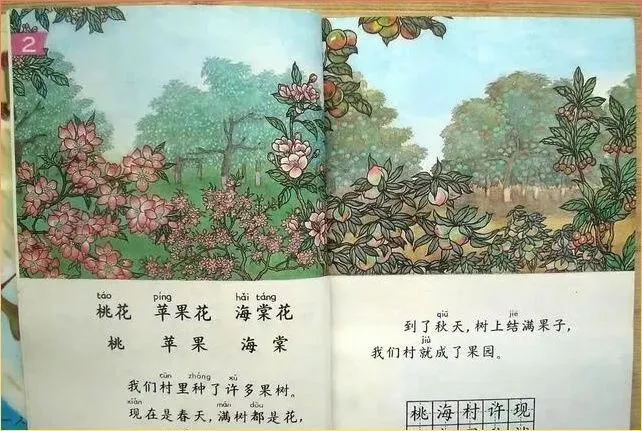 2
táo píng hǎi táng
桃花 苹果花 海棠花
桃 苹果 海棠
cūn zhòng xǔ
我们村里种了许多果树。
xiàn mǎn dōu
现在是春天，满树都是花，
qiū jiē
到了秋天，树上结满果子，
jiù
我们村就成了果园。
桃海村许现